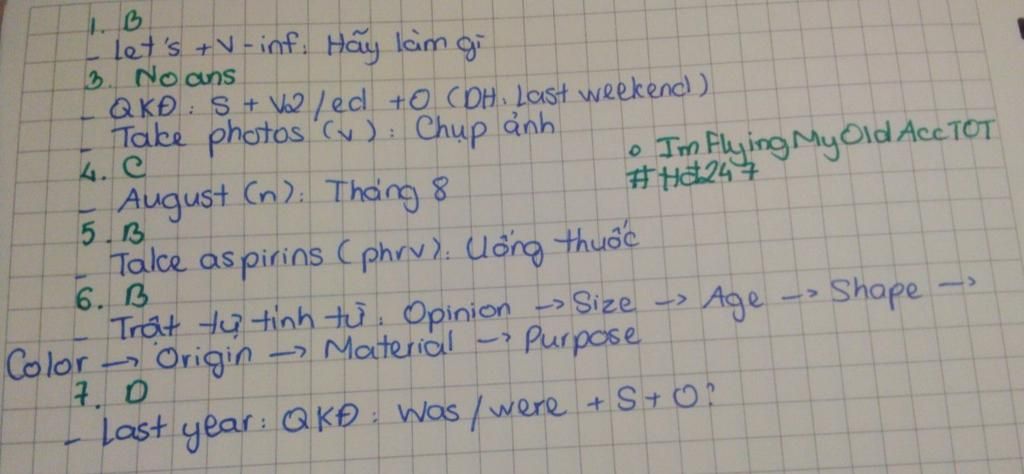 1. B
- Let's + V-inf: Hãy làm gì
3. No ans
- QKĐ: S + Vo2/ed + O (DH: Last weekend)
- Take photos (v): Chụp ảnh
4. C
- August (n): Tháng 8
5. B
- Take aspirins (phrv): Uống thuốc
6. B
- Trật tự tính từ: Opinion → Size → Age → Shape →
Color → Origin → Material → Purpose
7. D
- Last year: QKĐ: Was/were + S + O?
o ImFlyingMyOldAccTOT
#Hd247